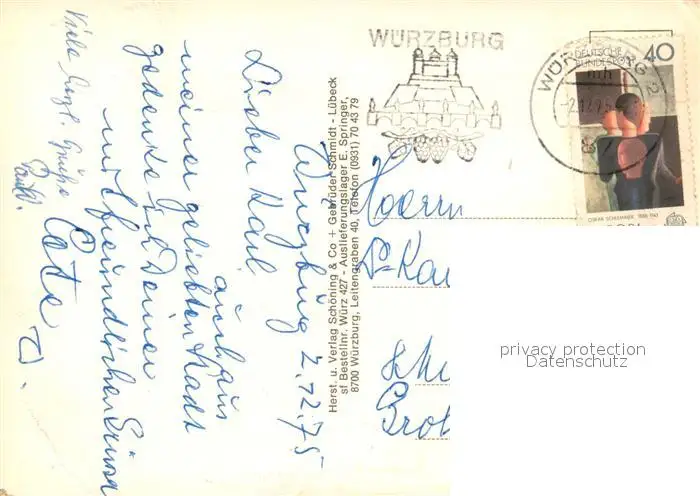 Würzburg 2.12.75
Lieber Karl,
auch aus
meiner geliebten Stadt
gedenke ich Deiner
mit freundlichen Grüßen
Viele Grüße
Herst. u. Verlag Schöning & Co + Gebrüder Schmidt - Lübeck
sf Bestellnr. Würz 427 - Auslieferungslager E. Springer,
8700 Würzburg, Leitengraben 40, Telefon (0931) 70 43 79
WÜRZBURG
DEUTSCHE
BUNDESPOST
40
WÜRZBURG 2
-2.12.75
87
OSKAR SCHLEMMER 1888-1943
Herrn
Dr. Kar
privacy protection
Datenschutz